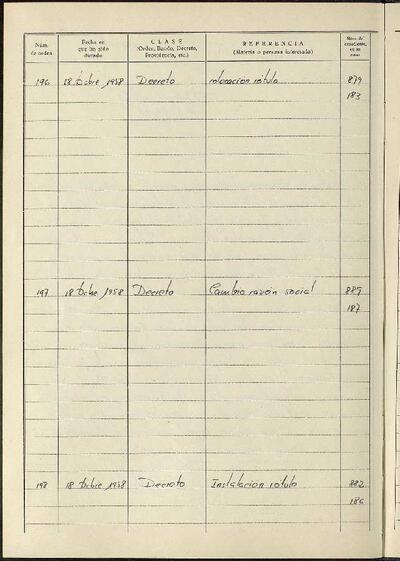 Núm. de orden
Fecha en que ha sido dictado
CLASE
(Orden, Bando, Decreto, Providencia, etc.)
REFERENCIA
(Materia o persona interesada)
196 18 Dcbre 1958 Decreto colocacion rotulo 879
183
197 18 Dcbre 1958 Decreto Cambio razón social 889
187
198 18 Dcbre 1958 Decreto Instalacion rotulo 882
186